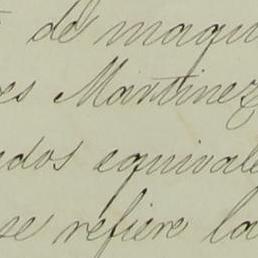 de maqui
es Martinez
dos equivale
se refiere la